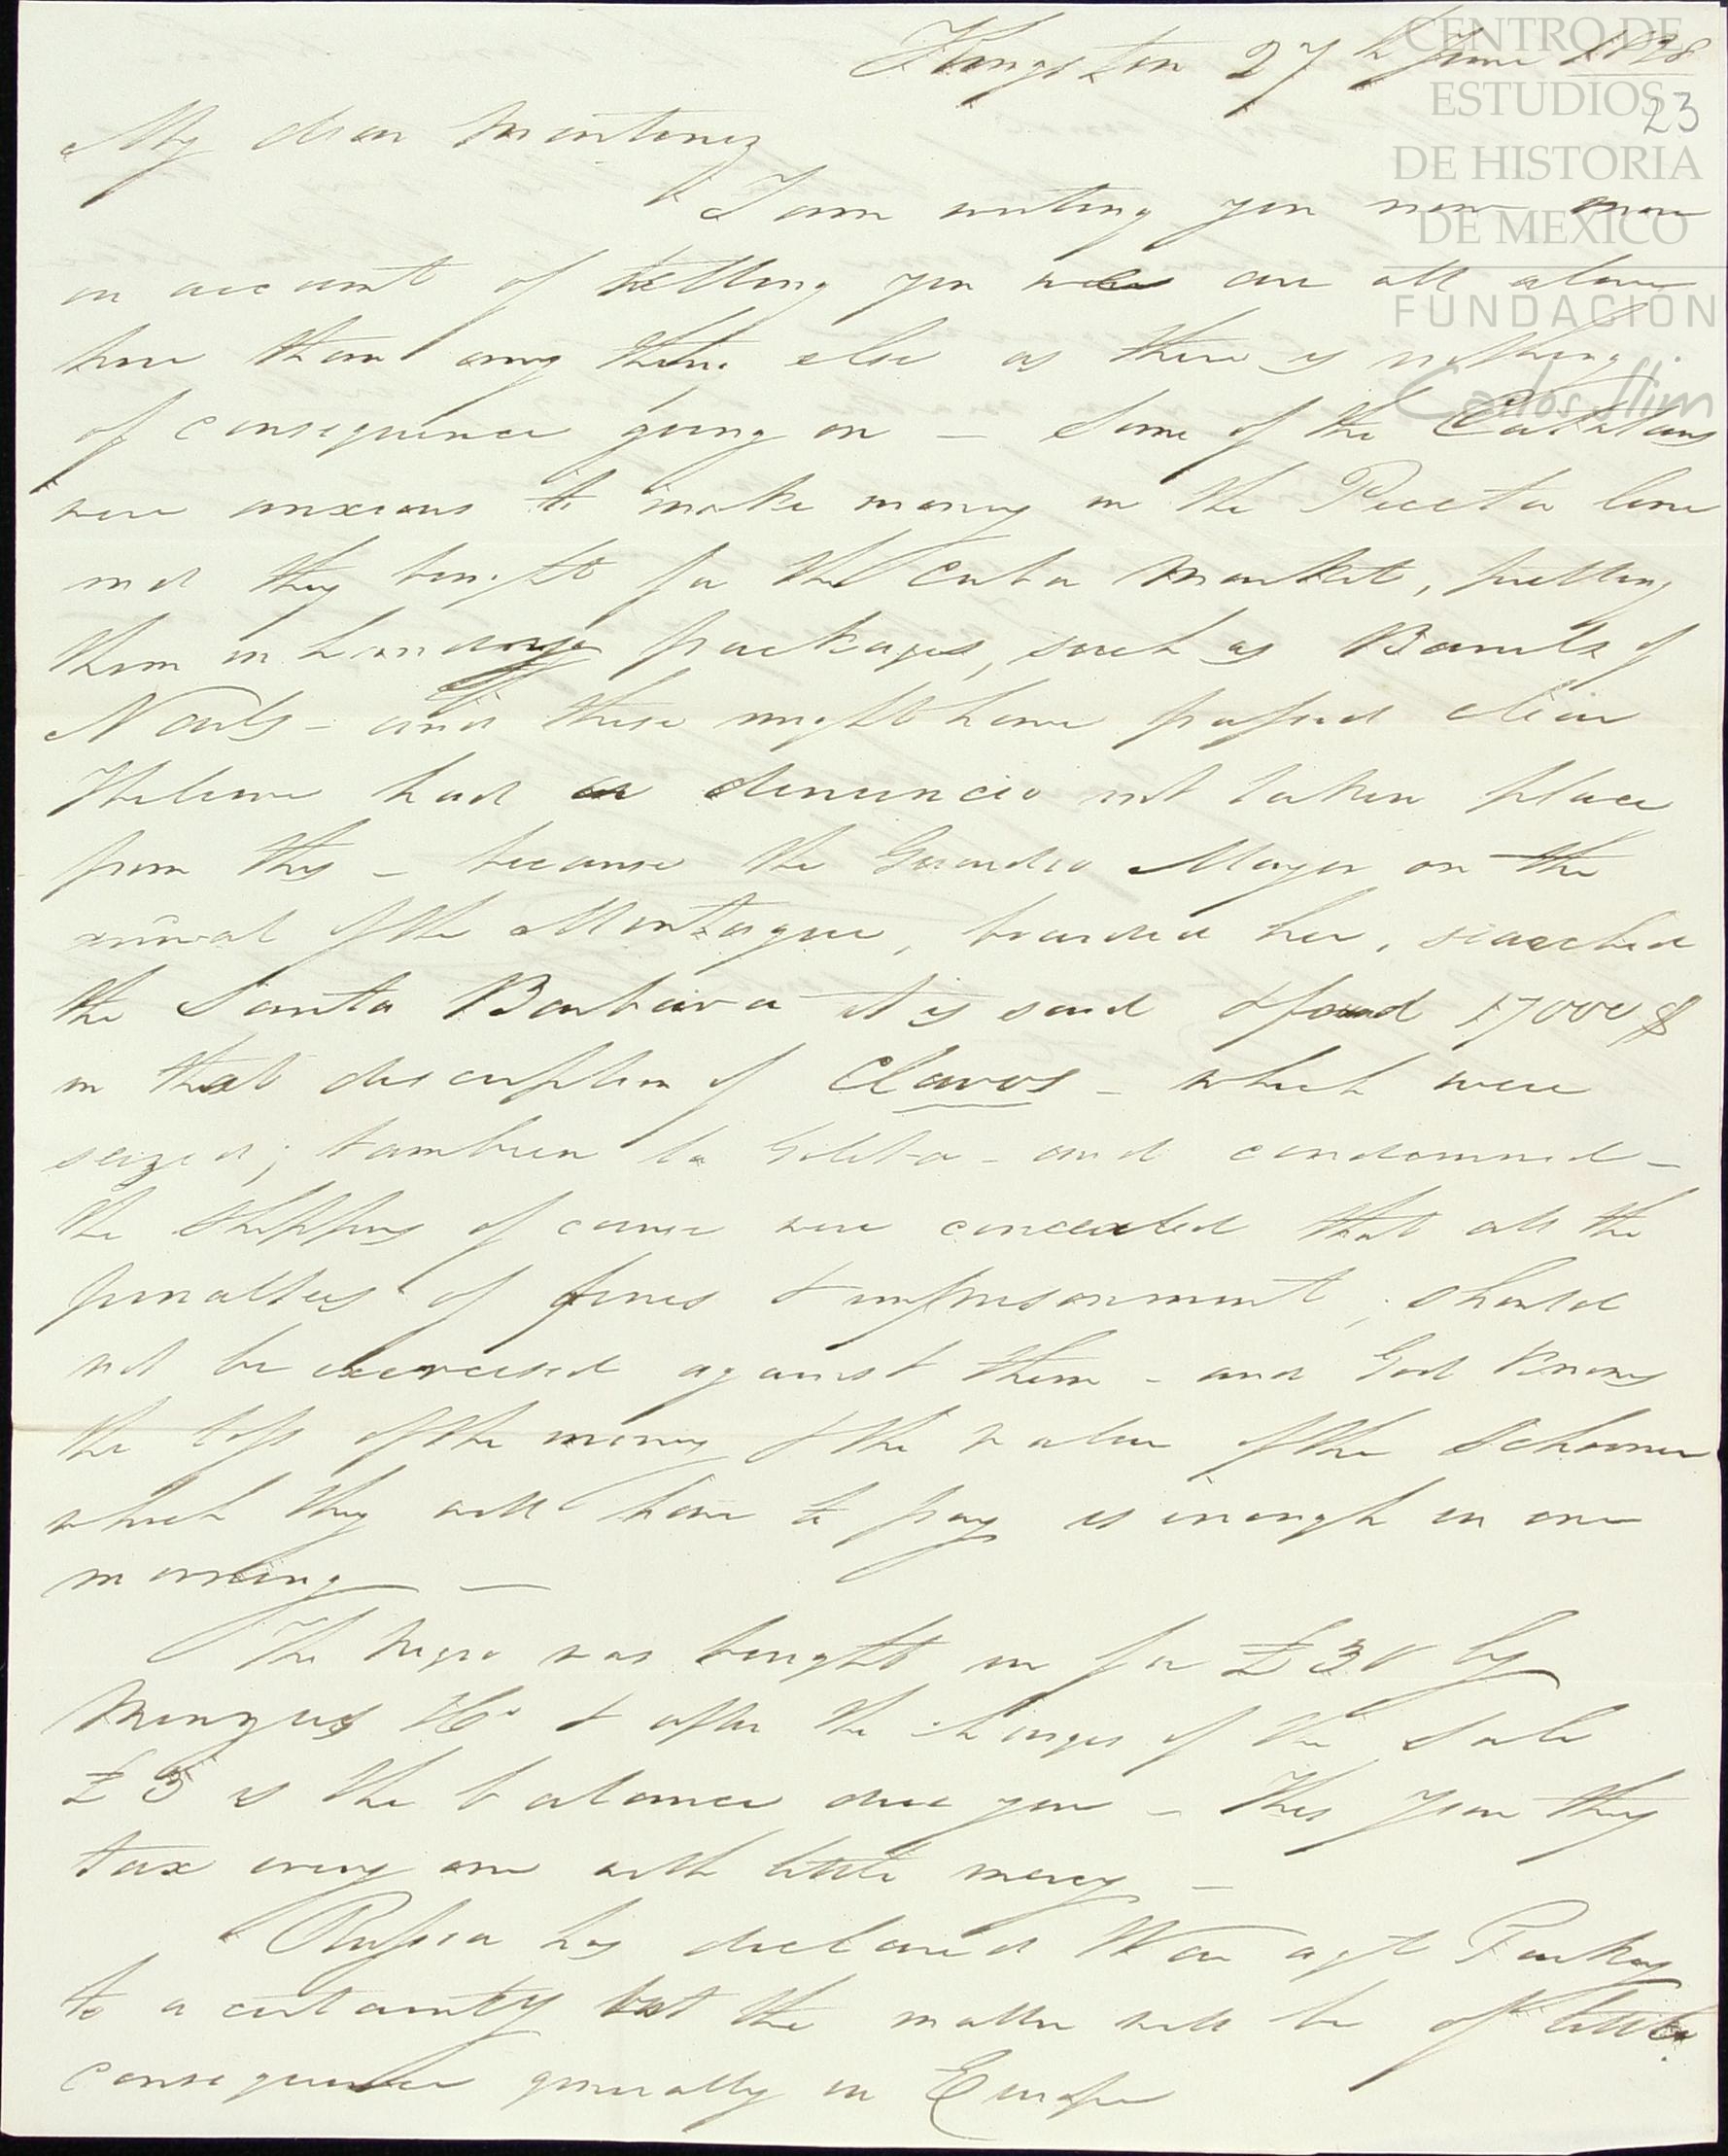 Kingston 27th June 1828
23
My dear Martinez
I am writing you now more
on account of telling you we are all alive
here than any thing else as there is nothing
of consequence going on — Some of the Catalans
were anxious to make money in the Peceta line
and they bought for the Cuba Market, putting
them in handy packages, such as Barrels of
Nails – and these might have passed clear
had a denuncio not taken place
from this – because the Guarda Mayor on the
arrival of the Montague, boarded her, searched
the Santa Barbara it is said & found 17000 $
in that description of Clavos – which were
seized; tambien la Goleta – and condemned –
the shippers of course were concealed that all the
penalties of fines & imprisonment, should
not be exercised against them – and God knows
the loss of the money & the value of the Schooner
which they will have to pay is enough in one
morning —
The Negro was bought in for £30 by
& Co & after the charges of the Sale
£5 is the balance due you – this year they
tax every one with little mercy –
Russia has declared War agt Turkey
to a certainty but the matter will be of little
consequence generally in Europe
CENTRO DE
ESTUDIOS
DE HISTORIA
DE MEXICO
FUNDACIÓN
Carlos Slim